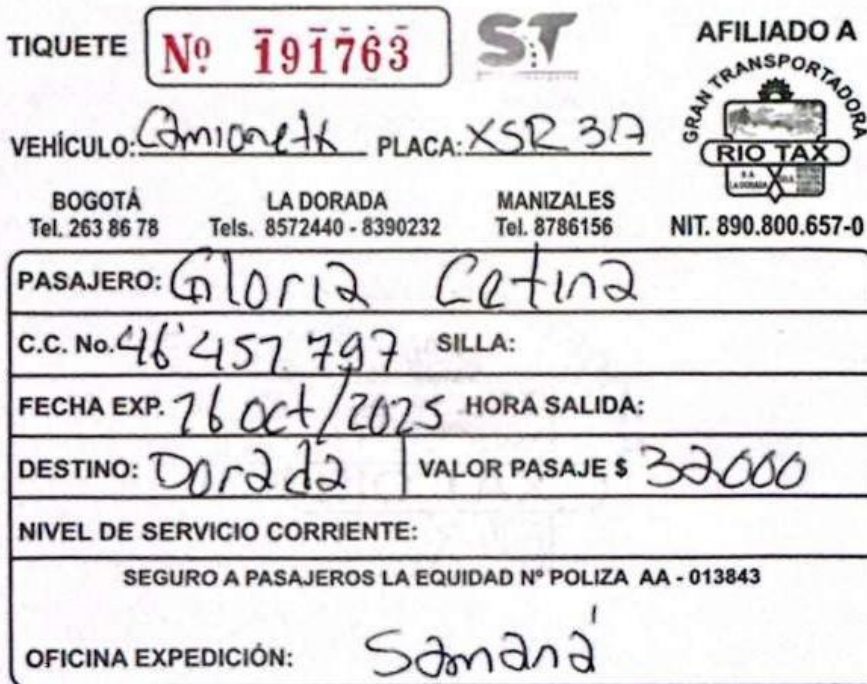 TIQUETE Nº 191763 ST AFILIADO A
GRAN TRANSPORTADORA
RIO TAX
S.A.
LA DORADA
VEHÍCULO: Camioneta PLACA: XSR 317
BOGOTÁ LA DORADA MANIZALES
Tel. 263 86 78 Tels. 8572440 - 8390232 Tel. 8786156 NIT. 890.800.657-0
PASAJERO: Gloria Cetina
C.C. No. 46'457.797 SILLA:
FECHA EXP. 26 Oct/2025 HORA SALIDA:
DESTINO: Dorada VALOR PASAJE $ 32000
NIVEL DE SERVICIO CORRIENTE:
SEGURO A PASAJEROS LA EQUIDAD Nº POLIZA AA - 013843
OFICINA EXPEDICIÓN: Samaná